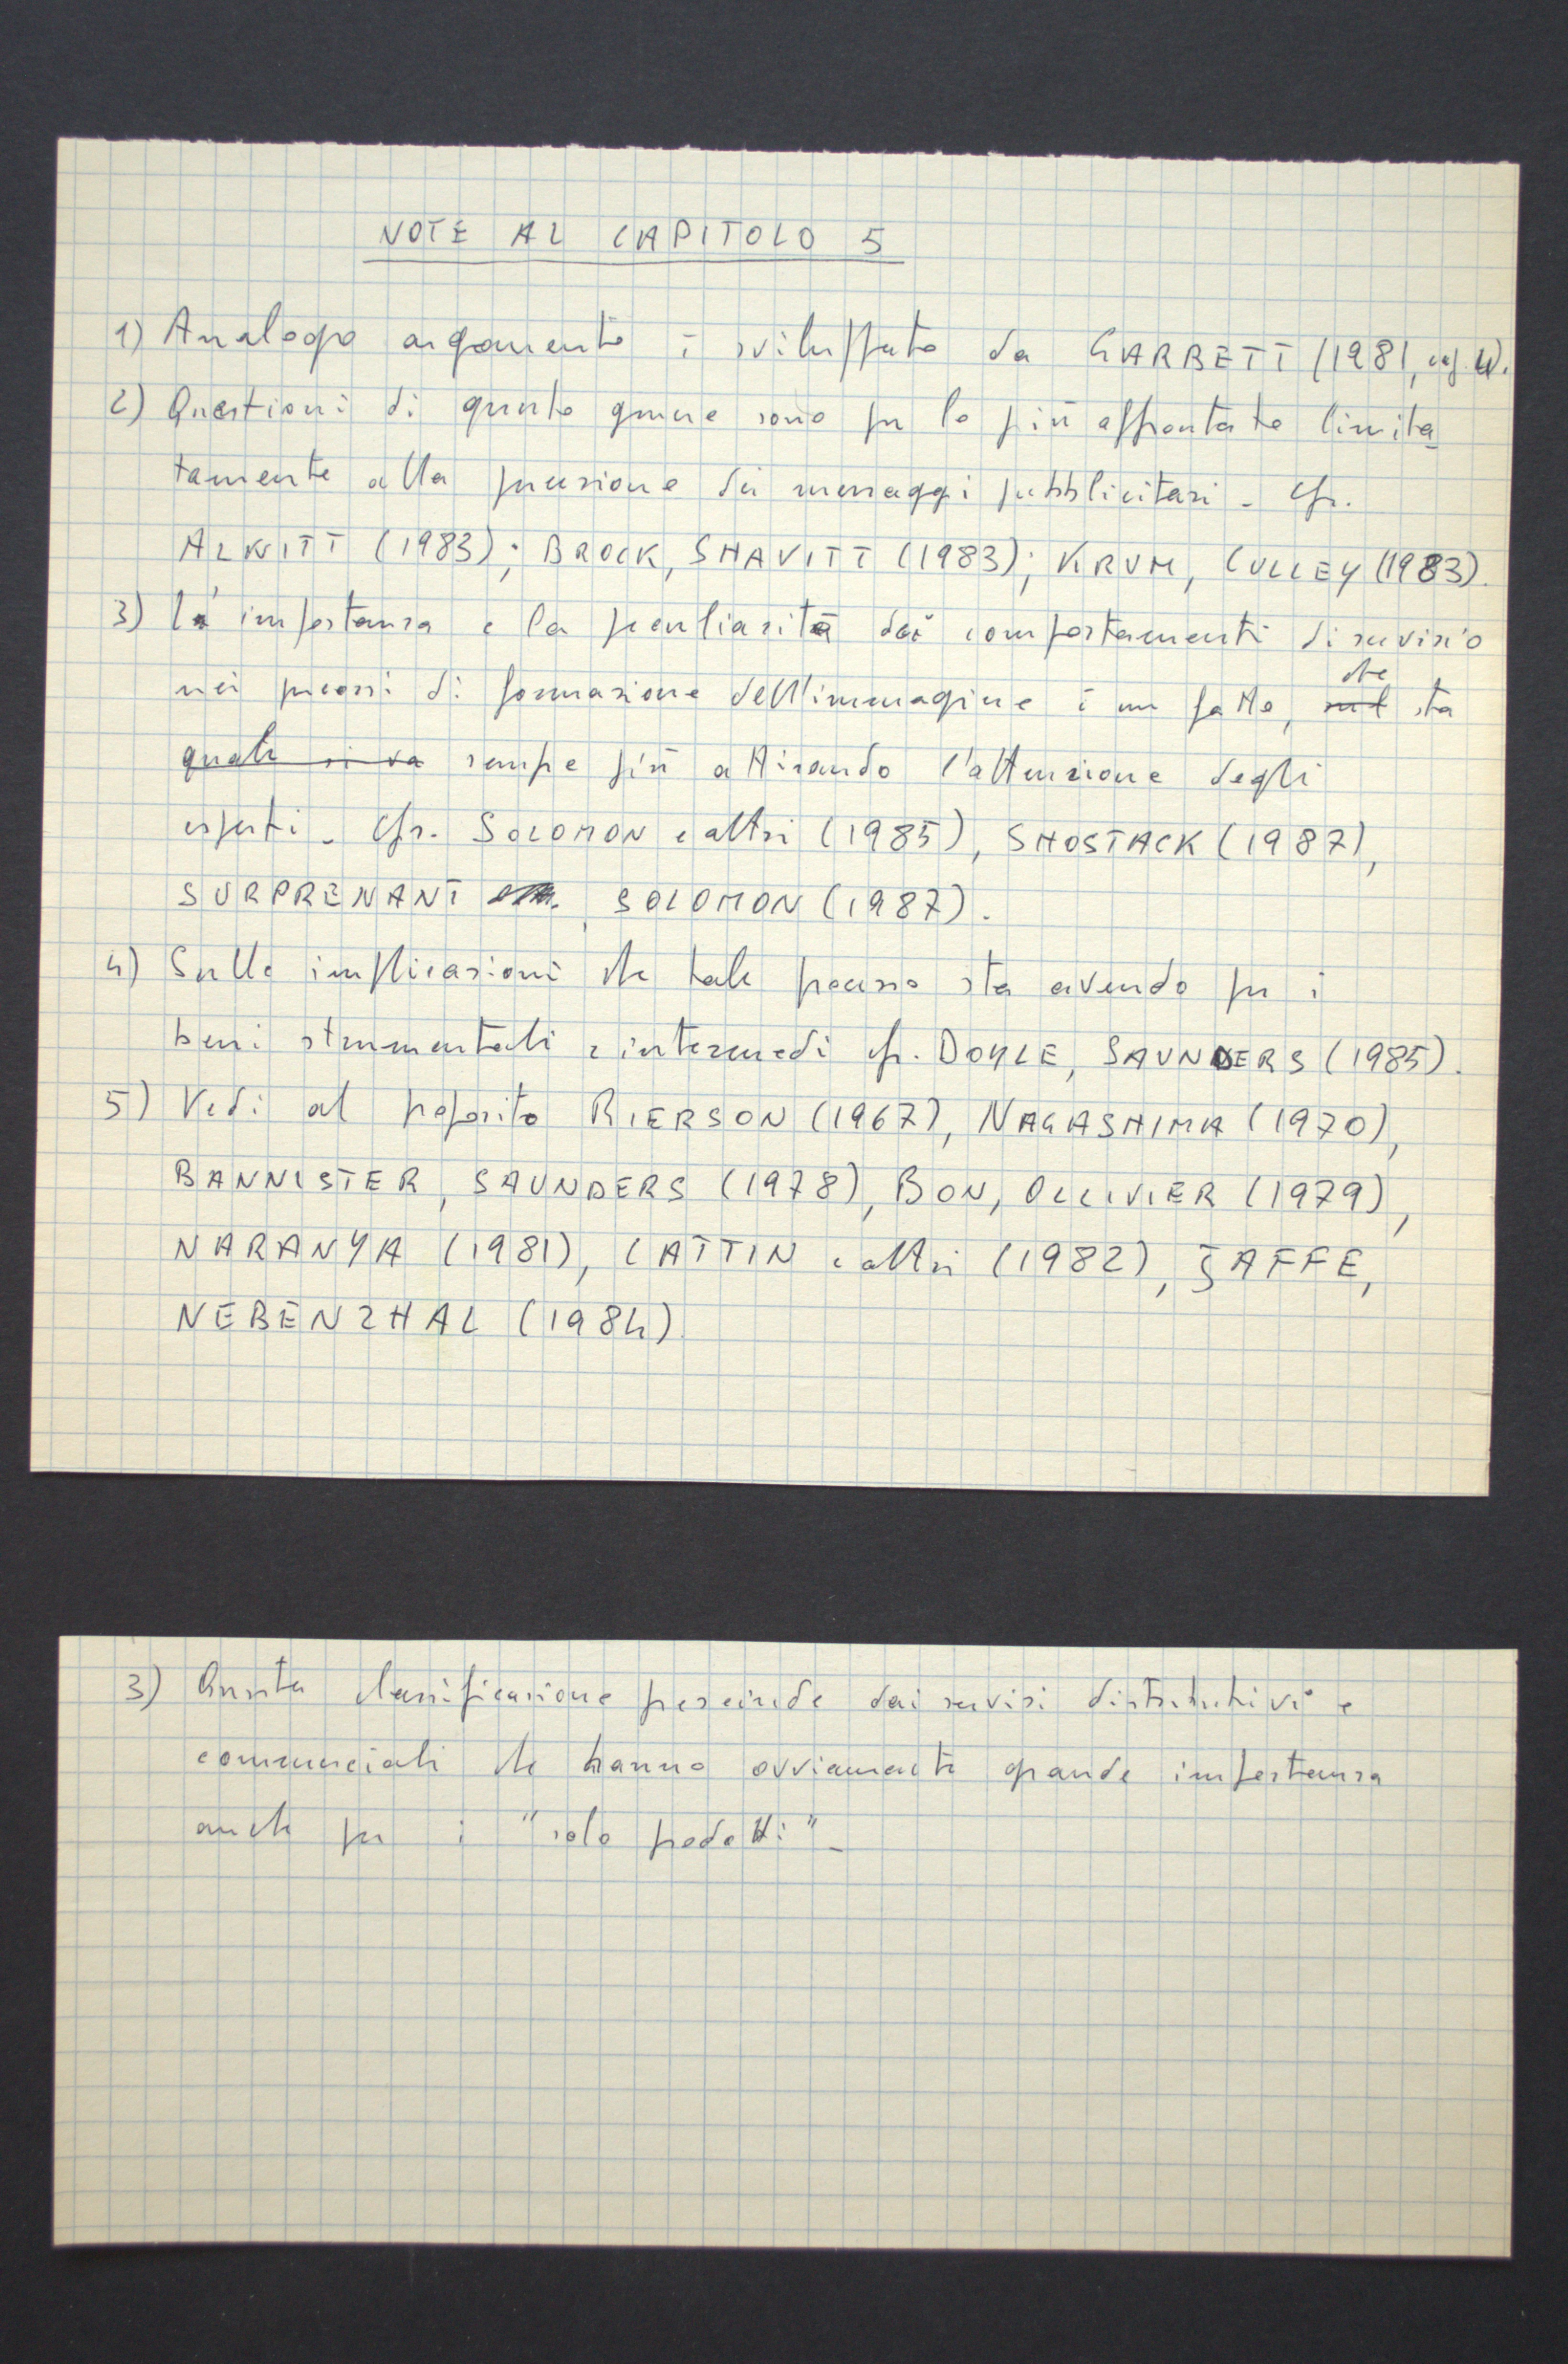 NOTE AL CAPITOLO 5
1) Analogo argomento è sviluppato da GARBETT (1981, cap. 4).
2) Questioni di questo genere sono per lo più affrontate limita
tamente alla precisione dei messaggi pubblicitari - cfr.
ALWITT (1983); BROCK, SHAVITT (1983); KRUM, CULLEY (1983).
3) L'importanza e la peculiarità dei comportamenti di servizio
nei processi di formazione dell'immagine è un fatto, sul che sta
quale si va sempre più attirando l'attenzione degli
esperti - cfr. SOLOMON e altri (1985), SHOSTACK (1987),
SURPRENANT, SOLOMON (1987).
4) Sulle implicazioni che tale processo sta avendo per i
beni strumentali e intermedi cfr. DOYLE, SAUNDERS (1985).
5) Vedi al proposito RIERSON (1967), NAGASHIMA (1970),
BANNISTER, SAUNDERS (1978), BON, OLLIVIER (1979),
NARANYA (1981), CATTIN e altri (1982), JAFFE,
NEBENZHAL (1984)
3) Questa classificazione prescinde dai servizi distributivi e
commerciali che hanno ovviamente grande importanza
anche per i "solo prodotti"-